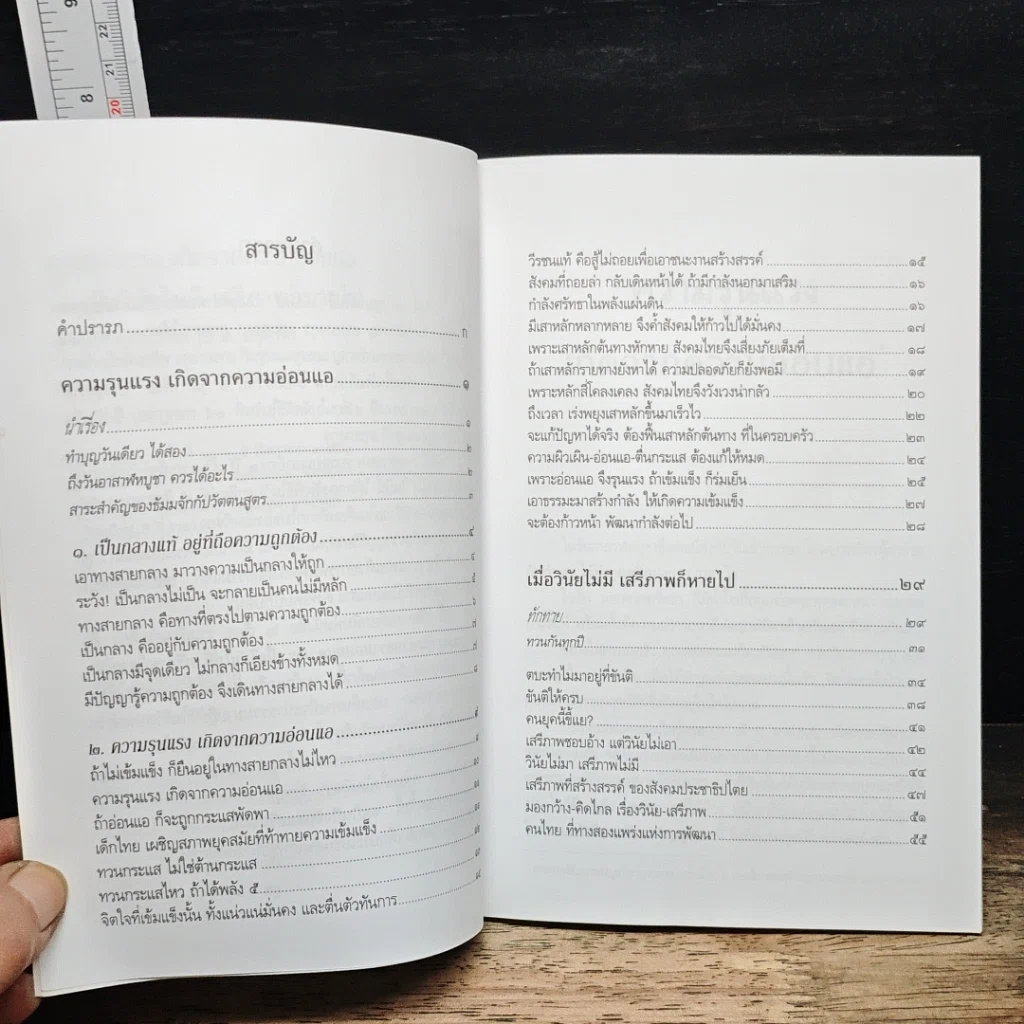 สารบัญ
คำปรารภ ก
ความรุนแรง เกิดจากความอ่อนแอ ๑
นำเรื่อง ๑
ทำบุญวันเดียว ได้สอง ๒
ถึงวันอาสาฬหบูชา ควรได้อะไร ๒
สาระสำคัญของธัมมจักกัปวัตตนสูตร ๓
๑. เป็นกลางแท้ อยู่ที่ถือความถูกต้อง ๔
เอาทางสายกลาง มาวางความเป็นกลางให้ถูก ๔
ระวัง! เป็นกลางไม่เป็น จะกลายเป็นคนไม่มีหลัก ๕
ทางสายกลาง คือทางที่ตรงไปตามความถูกต้อง ๖
เป็นกลาง คืออยู่กับความถูกต้อง ๗
เป็นกลางมีจุดเดียว ไม่กลางก็เอียงข้างทั้งหมด
มีปัญญารู้ความถูกต้อง จึงเดินทางสายกลางได้
๒. ความรุนแรง เกิดจากความอ่อนแอ
ถ้าไม่เข้มแข็ง ก็ยืนอยู่ในทางสายกลางไม่ไหว
ความรุนแรง เกิดจากความอ่อนแอ
ถ้าอ่อนแอ ก็จะถูกกระแสพัดพา
เด็กไทย เผชิญสภาพยุคสมัยที่ท้าทายความเข้มแข็ง
ทวนกระแส ไม่ใช่ต้านกระแส
ทวนกระแสไหว ถ้าได้พลัง ๕
จิตใจที่เข้มแข็งนั้น ทั้งแน่วแน่มั่นคง และตื่นตัวทันการ
วีรชนแท้ คือสู้ไม่ถอยเพื่อเอาชนะงานสร้างสรรค์ ๑๕
สังคมที่ถอยล่า กลับเดินหน้าได้ ถ้ามีกำลังนอกมาเสริม ๑๖
กำลังศรัทธาในพลังแผ่นดิน ๑๖
มีเสาหลักหลากหลาย จึงค้ำสังคมให้ก้าวไปได้มั่นคง ๑๗
เพราะเสาหลักต้นทางหักหาย สังคมไทยจึงเสี่ยงภัยเต็มที่ ๑๘
ถ้าเสาหลักรายทางยังหาได้ ความปลอดภัยก็ยังพอมี ๑๙
เพราะหลักสี่โคลงเคลง สังคมไทยจึงวังเวงน่ากลัว ๒๐
ถึงเวลา เร่งพยุงเสาหลักขึ้นมาเร็วไว ๒๒
จะแก้ปัญหาได้จริง ต้องฟื้นเสาหลักต้นทาง ที่ในครอบครัว ๒๓
ความผิวเผิน-อ่อนแอ-ตื่นกระแส ต้องแก้ให้หมด ๒๔
เพราะอ่อนแอ จึงรุนแรง ถ้าเข้มแข็ง ก็ร่มเย็น ๒๕
เอาธรรมะมาสร้างกำลัง ให้เกิดความเข้มแข็ง ๒๗
จะต้องก้าวหน้า พัฒนากำลังต่อไป ๒๘
เมื่อวินัยไม่มี เสรีภาพก็หายไป ๒๙
ทักทาย ๒๙
ทวนกันทุกปี ๓๑
ตบะทำไมมาอยู่ที่ขันติ ๓๔
ขันติให้ครบ ๓๘
คนยุคนี้ขี้แย? ๔๑
เสรีภาพชอบอ้าง แต่วินัยไม่เอา ๔๒
วินัยไม่มา เสรีภาพไม่มี ๔๔
เสรีภาพที่สร้างสรรค์ ของสังคมประชาธิปไตย ๔๗
มองกว้าง-คิดไกล เรื่องวินัย-เสรีภาพ ๕๑
คนไทย ที่ทางสองแพร่งแห่งการพัฒนา ๕๕